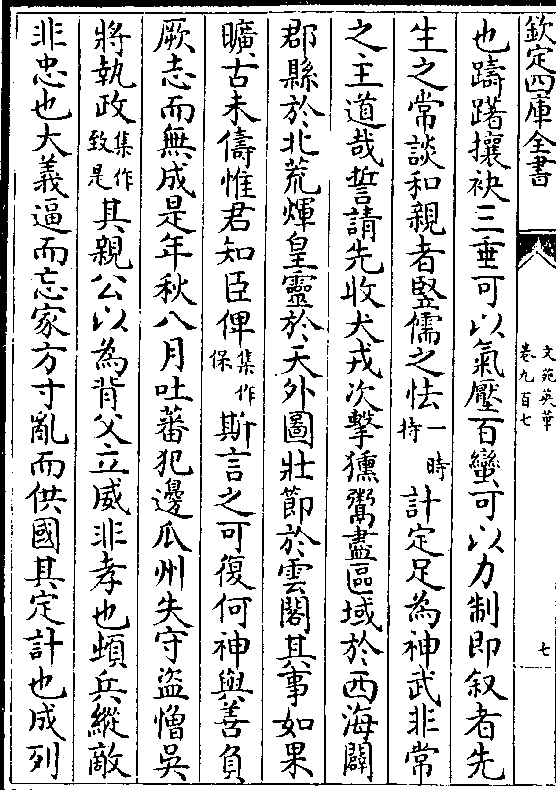 欽定四庫全書
文苑英華
卷九百七
七
也躊躇攘袂三垂可以氣壓百蠻可以力制即叙者先
生之常談和親者竪儒之怯一時持計定足為神武非常
之王道哉誓請先收犬戎次擊獯鬻盡區域於西海闢
郡縣於北荒煇皇靈於天外圖壯節於雲閣其事如果
曠古未儔惟君知臣俾集作保斯言之可復何神與善負
厥志而無成是年秋八月吐蕃犯邊瓜州失守盜憎吳
將執政集作致是其親公以為背父立威非孝也頓兵縱敵
非忠也大義逼而忘家方寸亂而供國其定計也成列